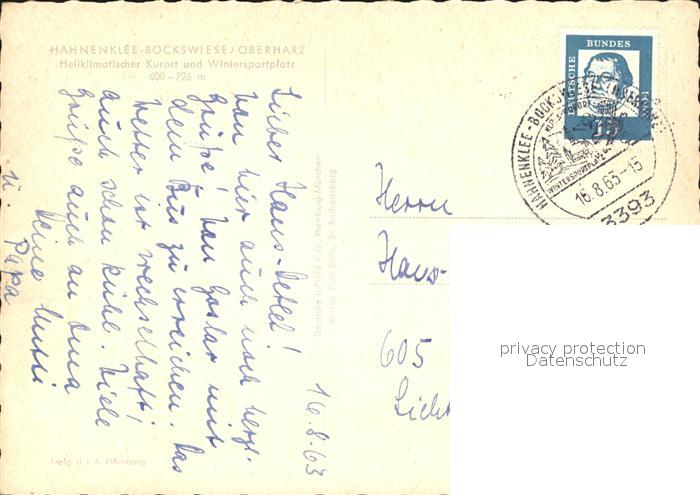 HAHNENKLEE-BOCKSWIESE/OBERHARZ
Heilklimatischer Kurort und Wintersportplatz
600–726 m
16.8.63
Lieber Hans-Detlef!
Von hier auch noch herzl.
Grüße! Von Goslar mit
dem Bus zu erreichen. Das
Wetter ist wechselhaft!
auch schon kühl. Viele
Grüße auch an Oma
Deine Mutti
u. Papa
Freig. d. L. A. Hamburg
Deutsche Luftbild K. G. Hamburg-München
Verlag Foto-Stille, St. Andreasberg
DEUTSCHE
BUNDES
POST
15
HAHNENKLEE-BOCKSWIESE (OBERHARZ)
WINTERSPORTPLATZ
16.8.63-15
3393
Herrn
Hans-
605
privacy protection
Datenschutz